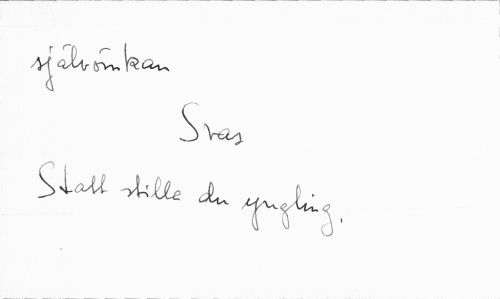 självömkan
Svas
Statt stilla du yngling.